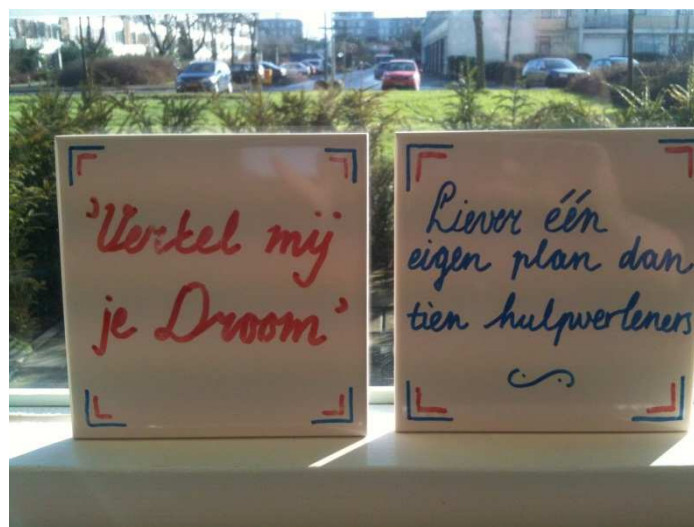 'Vertel mij
je Droom'
Liever één
eigen plan dan
tien hulpverleners